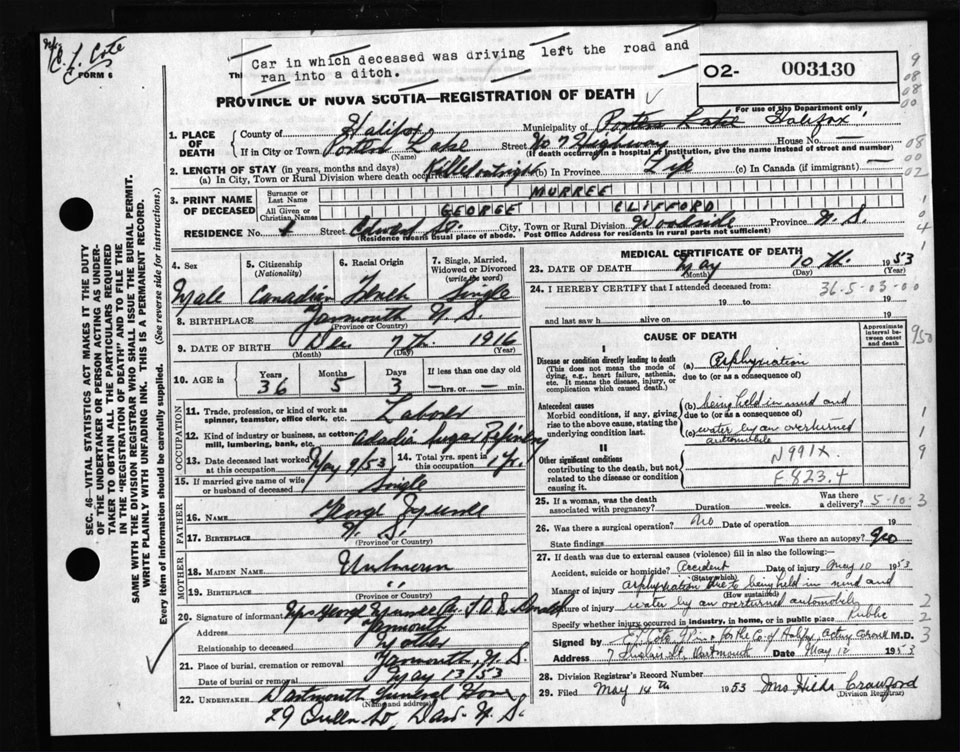 C. L. Cote
FORM 6
Car in which deceased was driving left the road and
ran into a ditch.
O2- 003130
For use of the Department only
PROVINCE OF NOVA SCOTIA—REGISTRATION OF DEATH
1. PLACE OF DEATH
County of Halifax Municipality of Porters Lake Halifax
If in City or Town Porters Lake Street No 7 Highway House No.
(Name) (If death occurred in a hospital or institution, give the name instead of street and number)
2. LENGTH OF STAY (in years, months and days)
(a) In City, Town or Rural Division where death occurred Killed outright (b) In Province Life (c) In Canada (if immigrant) —
3. PRINT NAME OF DECEASED
Surname or Last Name MURREE
All Given or Christian Names GEORGE CLIFFORD
RESIDENCE No. 1 Street Edward St. City, Town or Rural Division Woodside Province N. S.
(Residence means usual place of abode. Post Office Address for residents in rural parts not sufficient)
SEC. 46—VITAL STATISTICS ACT MAKES IT THE DUTY
OF THE UNDERTAKER OR PERSON ACTING AS UNDER-
TAKER TO OBTAIN ALL THE PARTICULARS REQUIRED
IN THE "REGISTRATION OF DEATH" AND TO FILE THE
SAME WITH THE DIVISION REGISTRAR WHO SHALL ISSUE THE BURIAL PERMIT.
WRITE PLAINLY WITH UNFADING INK. THIS IS A PERMANENT RECORD.
Every item of information should be carefully supplied. (See reverse side for instructions.)
4. Sex
Male
5. Citizenship
(Nationality)
Canadian
6. Racial Origin
French
7. Single, Married,
Widowed or Divorced
(write the word)
Single
8. BIRTHPLACE Yarmouth N. S.
(Province or Country)
9. DATE OF BIRTH Dec 7th 1916
(Month) (Day) (Year)
10. AGE in
Years 36
Months 5
Days 3
If less than one day old
— hrs. or — min.
OCCUPATION
11. Trade, profession, or kind of work as
spinner, teamster, office clerk, etc. Laborer
12. Kind of industry or business, as cotton-
mill, lumbering, bank, etc. Acadia Sugar Refinery
13. Date deceased last worked
at this occupation May 9/53
14. Total yrs. spent in
this occupation 1 yr.
15. If married give name of wife
or husband of deceased Single
FATHER
16. Name George
17. Birthplace N. S.
(Province or Country)
MOTHER
18. MAIDEN NAME Unknown
19. Birthplace "
(Province or Country)
20. Signature of informant Mrs George
Address Yarmouth
Relationship to deceased Mother
21. Place of burial, cremation or removal Yarmouth, N. S.
Date of burial or removal May 13/53
22. UNDERTAKER Dartmouth Funeral Home
(Name and address)
29 Queen St, Dart- N. S.
MEDICAL CERTIFICATE OF DEATH
23. DATE OF DEATH May 10 th. 1953
(Month) (Day) (Year)
24. I HEREBY CERTIFY that I attended deceased from:
36-5-03-00
19 to 19
and last saw h alive on 19
CAUSE OF DEATH
Approximate
interval be-
tween onset
and death
I
Disease or condition directly leading to death
(This does not mean the mode of
dying, e.g., heart failure, asthenia,
etc. It means the disease, injury, or
complication which caused death.)
(a) Asphyxiation
due to (or as a consequence of)
Antecedent causes
Morbid conditions, if any, giving
rise to the above cause, stating the
underlying condition last.
(b) being held in mud and
due to (or as a consequence of)
(c) water by an overturned
automobile
II
Other significant conditions
contributing to the death, but not
related to the disease or condition
causing it.
N991X
E-823.4
25. If a woman, was the death
associated with pregnancy? Duration weeks. Was there
a delivery? 5-10-3
26. Was there a surgical operation? No Date of operation 19
State findings Was there an autopsy? No
27. If death was due to external causes (violence) fill in also the following:—
Accident, suicide or homicide? Accident Date of injury May 10 1953
(State which)
Manner of injury asphyxiation due to being held in mud and
(How sustained)
Nature of injury water by an overturned automobile
Specify whether injury occurred in industry, in home, or in public place Public
Signed by for the Co. of Halifax Acting Coroner M.D.
Address Dartmouth Date May 12 1953
28. Division Registrar's Record Number
29. Filed May 14th 1953 Mrs Hilda Crawford
(Division Registrar)